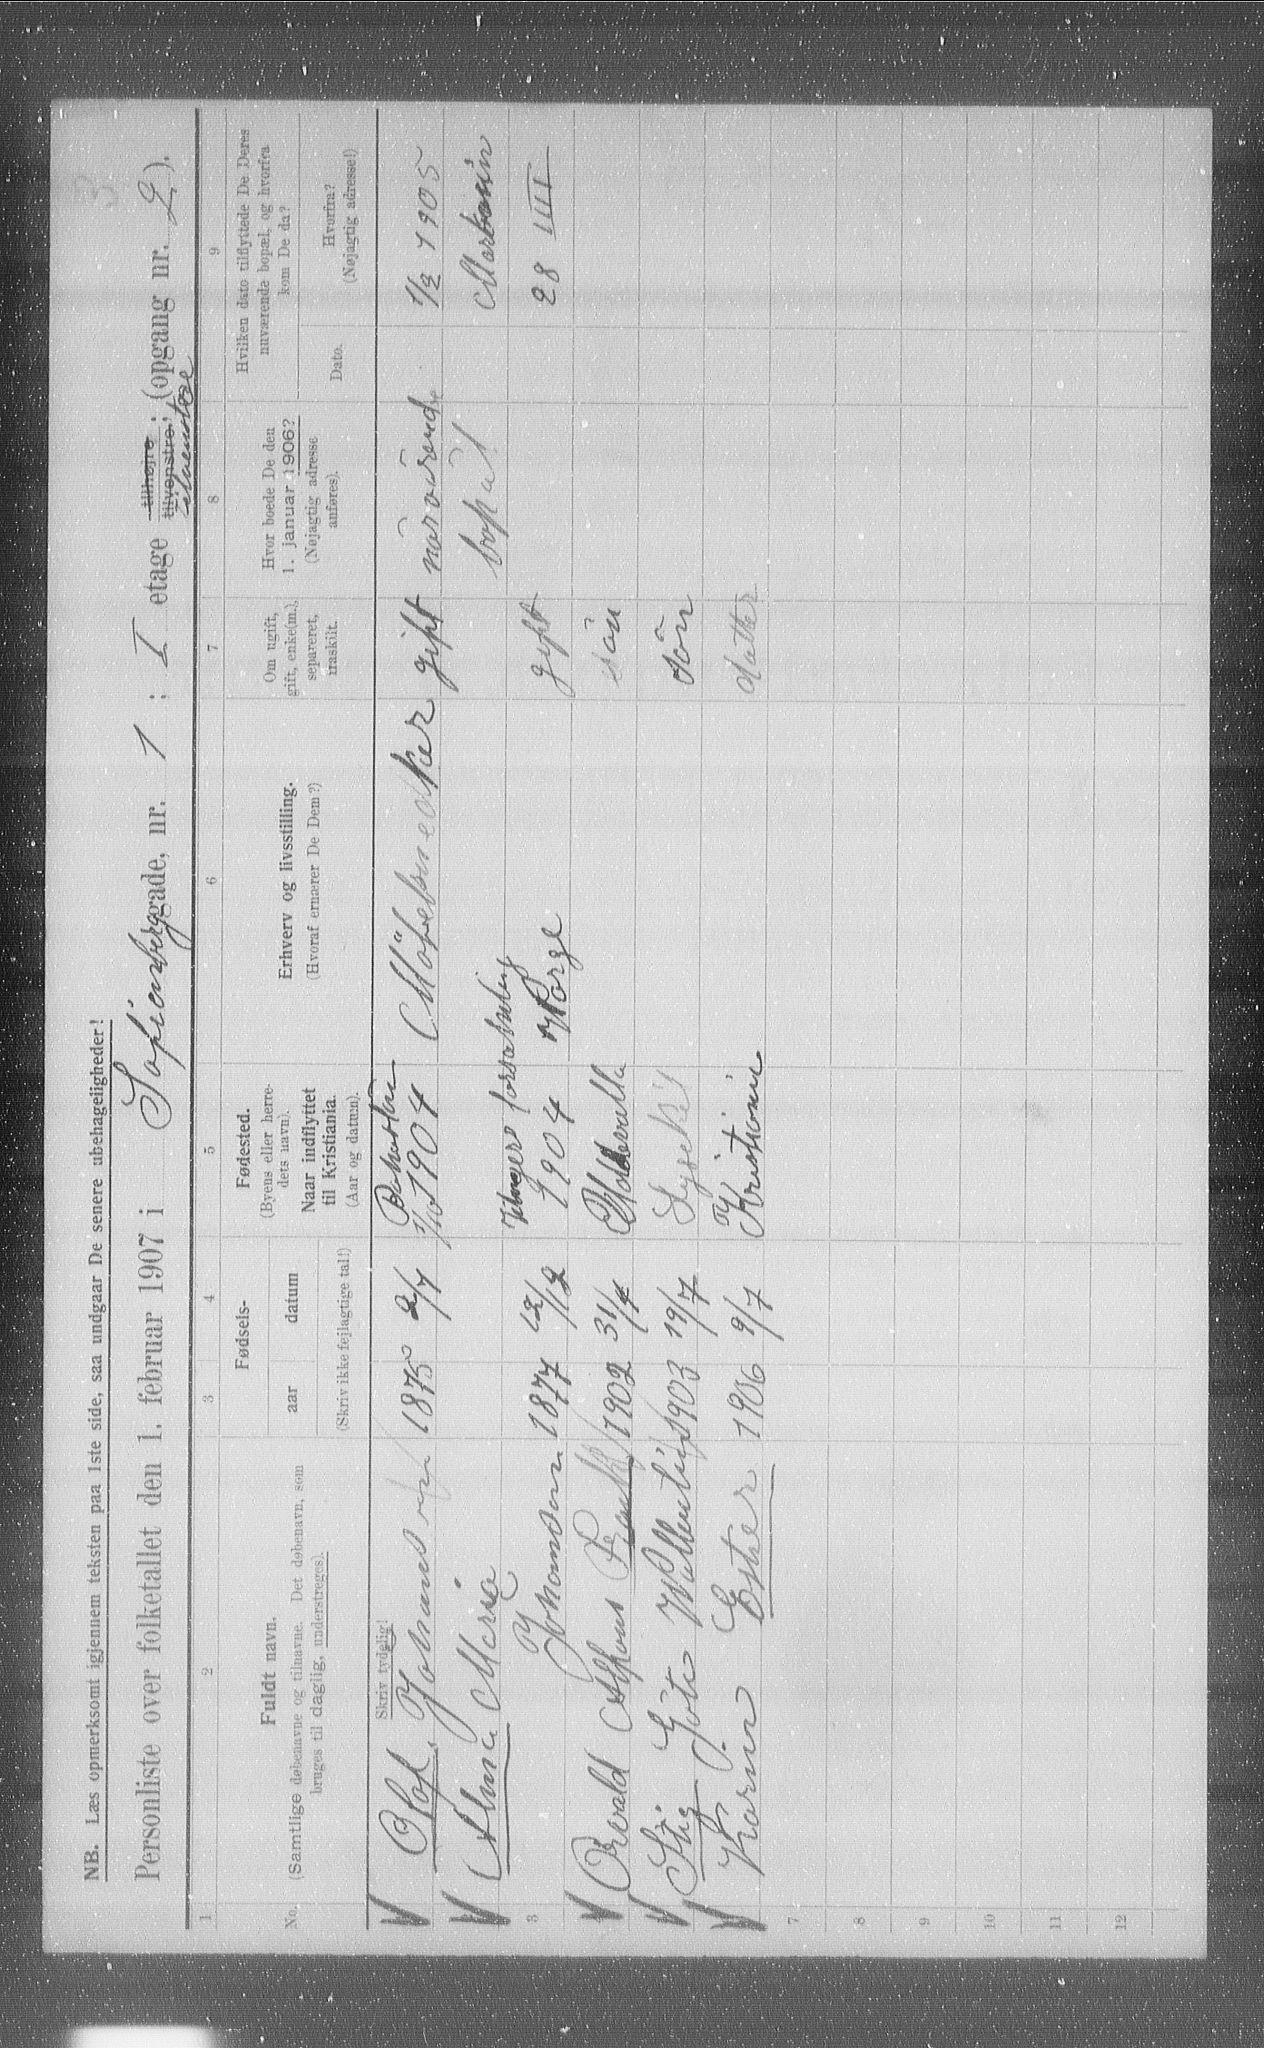 NB. Læs opmerksomt igjennem teksten paa 1ste side, saa undgaar De senere ubehageligheder!
Personliste over folketallet den 1. februar 1907 i Sofienberggade, nr. 1 ; I etage tilhøjre ; (opgang nr. 2).
tilvenstre ;
tilvenstre
1 2 3 4 5 6 7 8 9
No.
Fuldt navn.
(Samtlige døbenavne og tilnavne. Det døbenavn, som
bruges til daglig, understreges).
Fødsels-
aar datum
(Skriv ikke fejlagtige tal!)
Fødested.
(Byens eller herre-
dets navn).
Naar indflyttet
til Kristiania.
(Aar og datum).
Erhverv og livsstilling.
(Hvoraf ernærer De Dem?)
Om ugift,
gift, enke(m.),
separeret,
fraskilt.
Hvor boede De den
1. januar 1906?
(Nøjagtig adresse
anføres).
Hvilken dato tilflyttede De Deres
nuværende bopæl, og hvorfra
kom De da?
Dato.
Hvorfra?
(Nøjagtig adresse!)
Skriv tydelig!
Olof Johansson 1875 2/7 1/10 1904 Möbelsnedker gift 1/2 1905
Alma Maria
bopäl
3 Johansson 1877 12/12 1904 Norge gift 28 III
Osvald Alfons 1902 31/4 Uddevalla sön
Stig Göte 1903 19/7 Lysekil sön
Karin Ester 1906 9/7 Kristiania datter
7
8
9
10
11
12